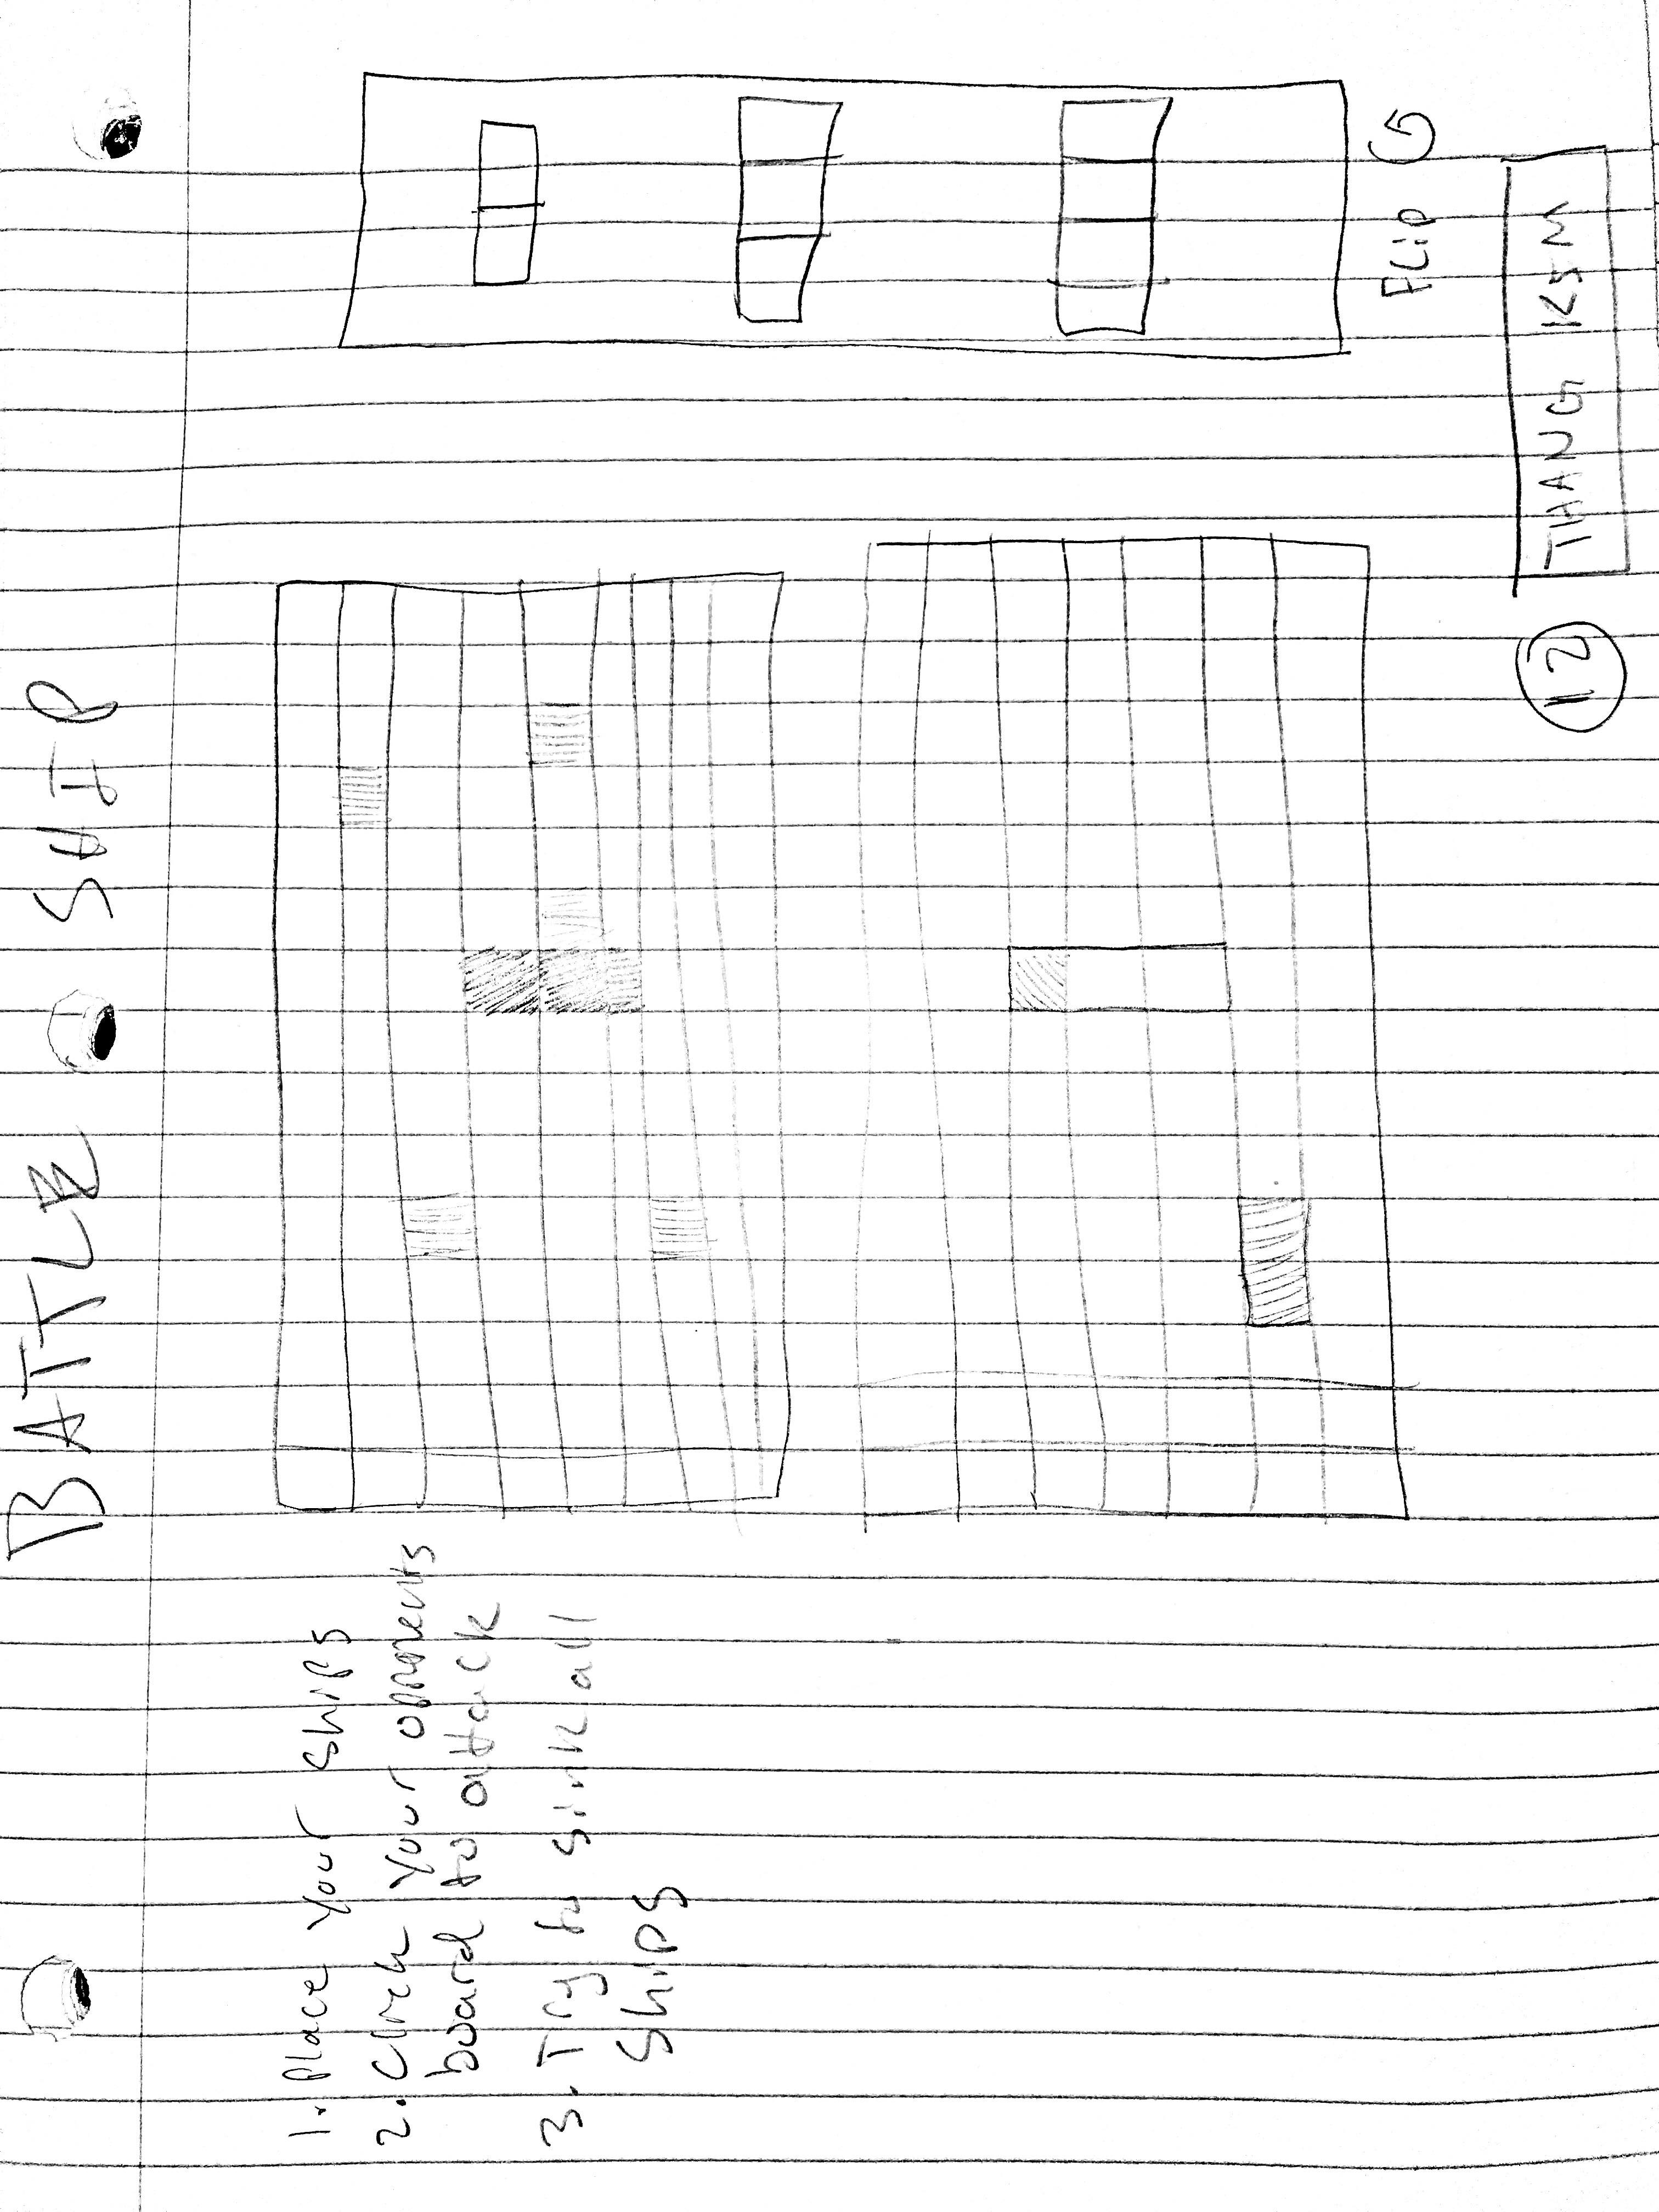 BATTLE SHIP
1. Place your ships
2. Click your opponents
board to attack
3. Try to sink all
ships
FLIP
12